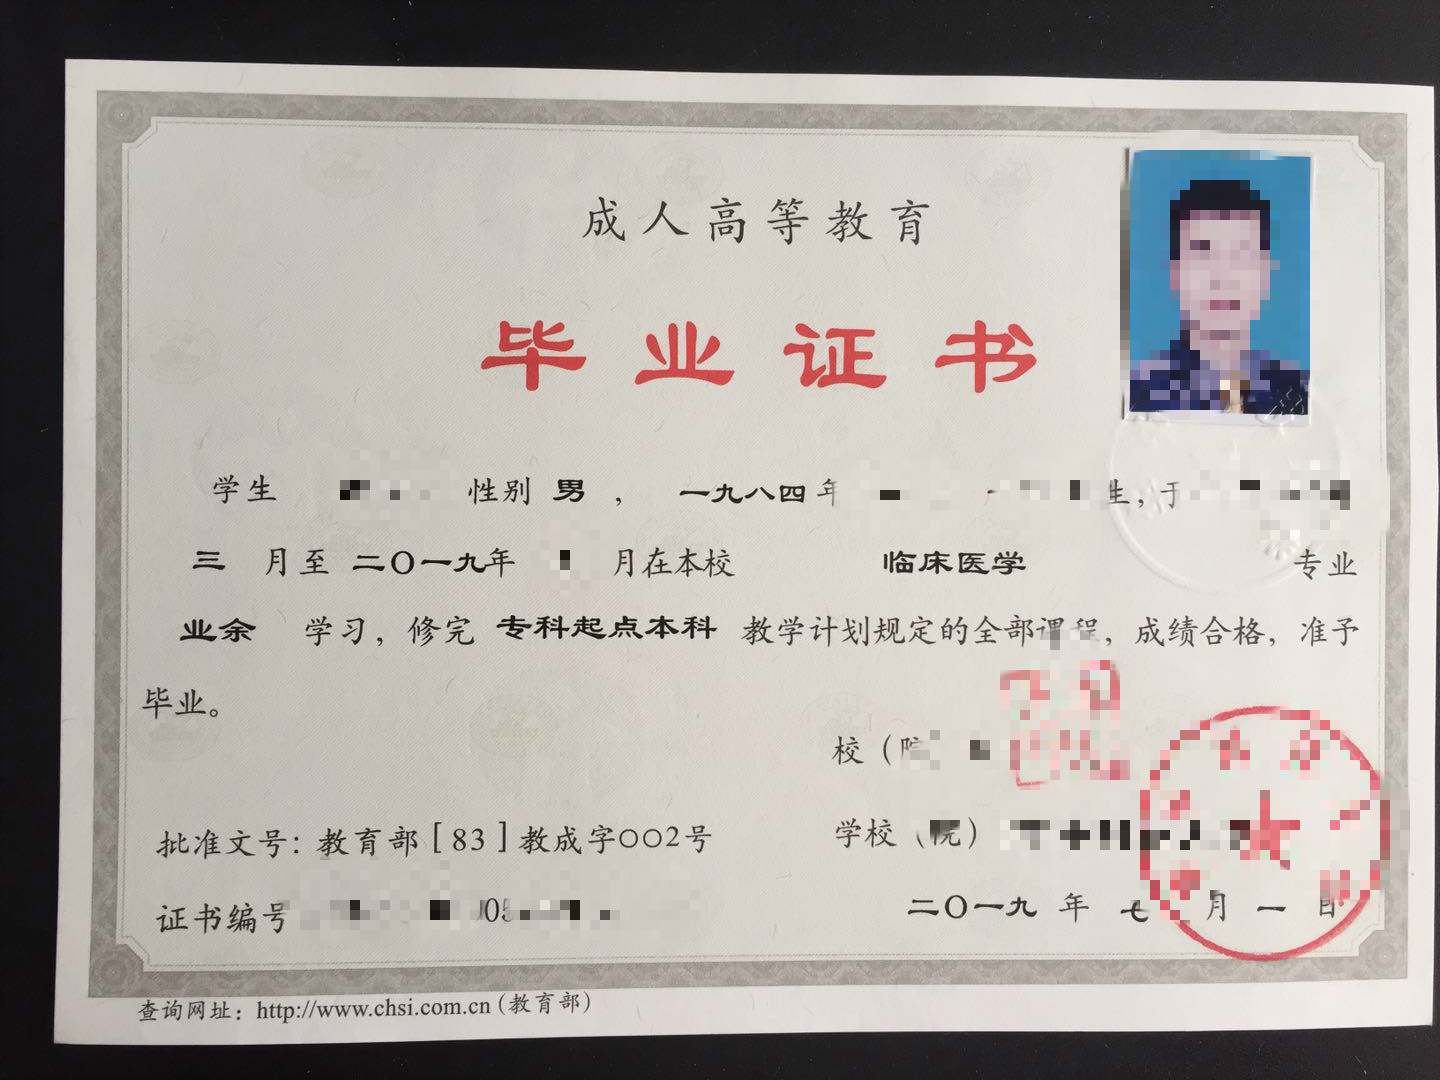 成人高等教育
毕业证书
学生 性别 男 , 一九八四年 生,于
三 月至 二〇一九年 月在本校 临床医学 专业
业余 学习，修完 专科起点本科 教学计划规定的全部课程，成绩合格，准予
毕业。
校（院
批准文号：教育部［83］教成字〇〇2号 学校（院）
证书编号 05 二〇一九 年 七 月 一 日
查询网址：http://www.chsi.com.cn(教育部)